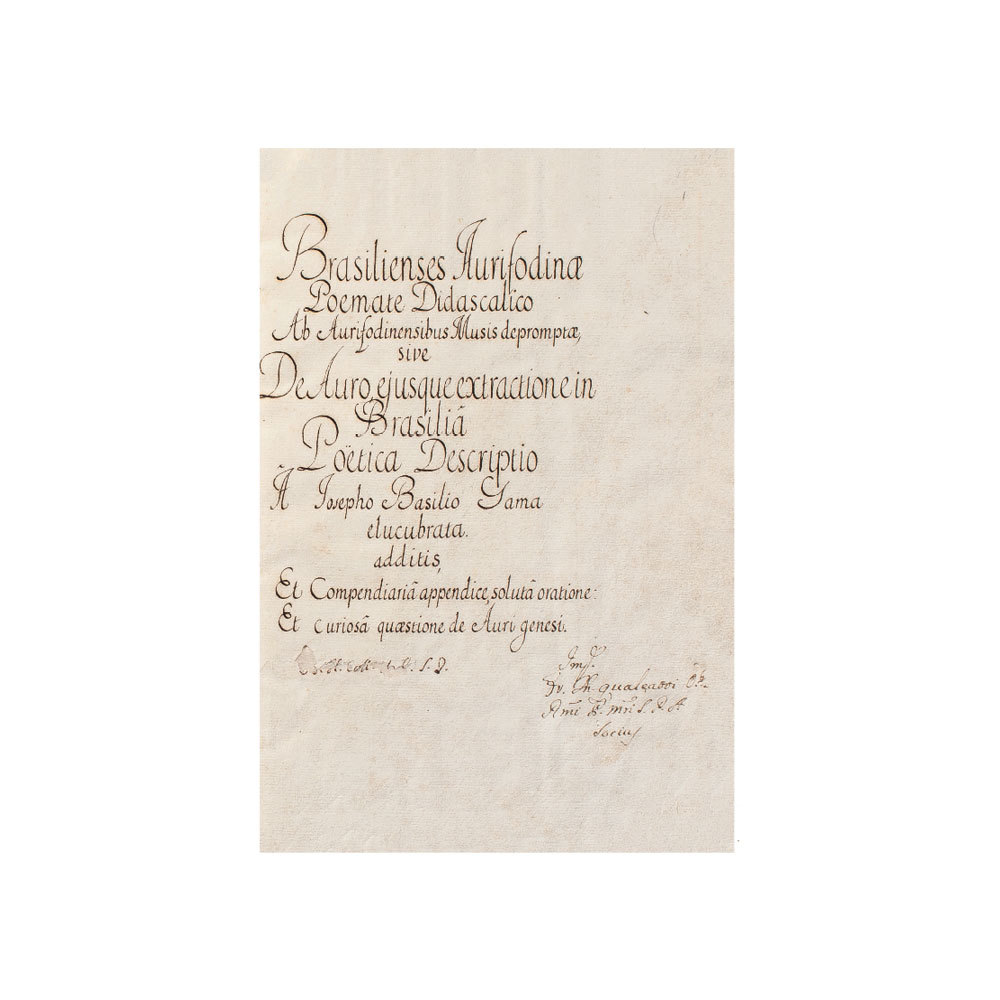 Brasilienses Aurifodinæ
Poemate Didascalico
Ab Aurifodinensibus Musis depromptæ,
sive
De Auro, ejusque extractione in
Brasiliâ
Poëtica Descriptio
Â Josepho Basilio Gama
elucubrata.
additis,
Et Compendiariâ appendice, solutâ oratione:
Et curiosâ quæstione de Auri genesi.
Socius